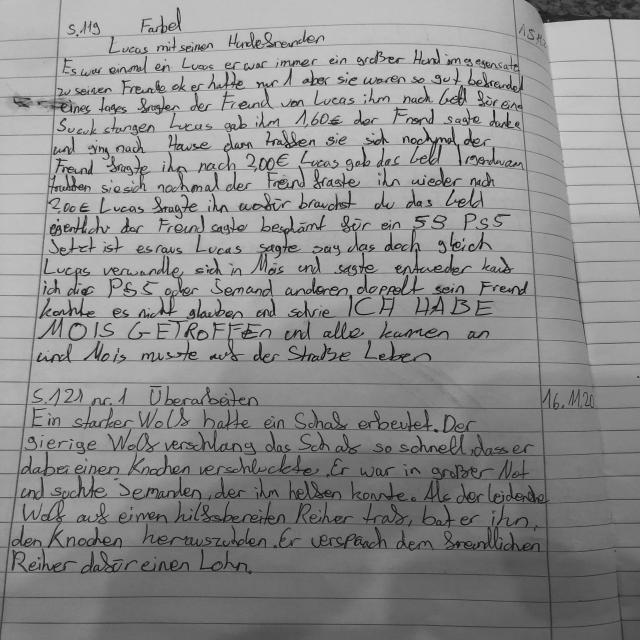 S.119 Farbel 15.11.
Lucas mit seinen Hundefreunden
Es war einmal ein Lucas er war immer ein großer Hund im gegensatz
zu seinen Freunde ok er hatte nur 1 aber sie waren so gut befreundet
eines tages fragten der Freund von Lucas ihm nach Geld für eine
Sucuk stangen Lucas gab ihm 1,60€ der Freund sagte danke
und ging nach Hause dann traffen sie sich nochmal der
Freund fragte ihn nach 2,00€ Lucas gab das Geld Irgendwann
traffen sie sich nochmal der Freund fragte ihn wieder nach
2,00€ Lucas fragte ihn wofür brauchst du das Geld
eigentlich der Freund sagte bestimmt für ein 5$ PS5
Jetzt ist es raus Lucas sagte sag das doch gleich
Lucas verwandle sich in Mois und sagte entweder kauf
ich die PS5 oder Jemand anderen doppelt sein Freund
konnte es nicht glauben und schrie ICH HABE
MOIS GETROFFEN und alle kammen an
und Mois musste auf der Straße Leben
S.121 nr.1 Überarbeiten 16.11.20
Ein starker Wolf hatte ein Schaf erbeutet. Der
gierige Wolf verschlang das Schaf so schnell, dass er
dabei einen Knochen verschluckte. Er war in großer Not
und suchte Jemanden, der ihm helfen konnte. Als der leidende
Wolf auf einen hilfsbereiten Reiher traf, bat er ihn,
den Knochen herauszuholen. Er versprach dem freundlichen
Reiher dafür einen Lohn.